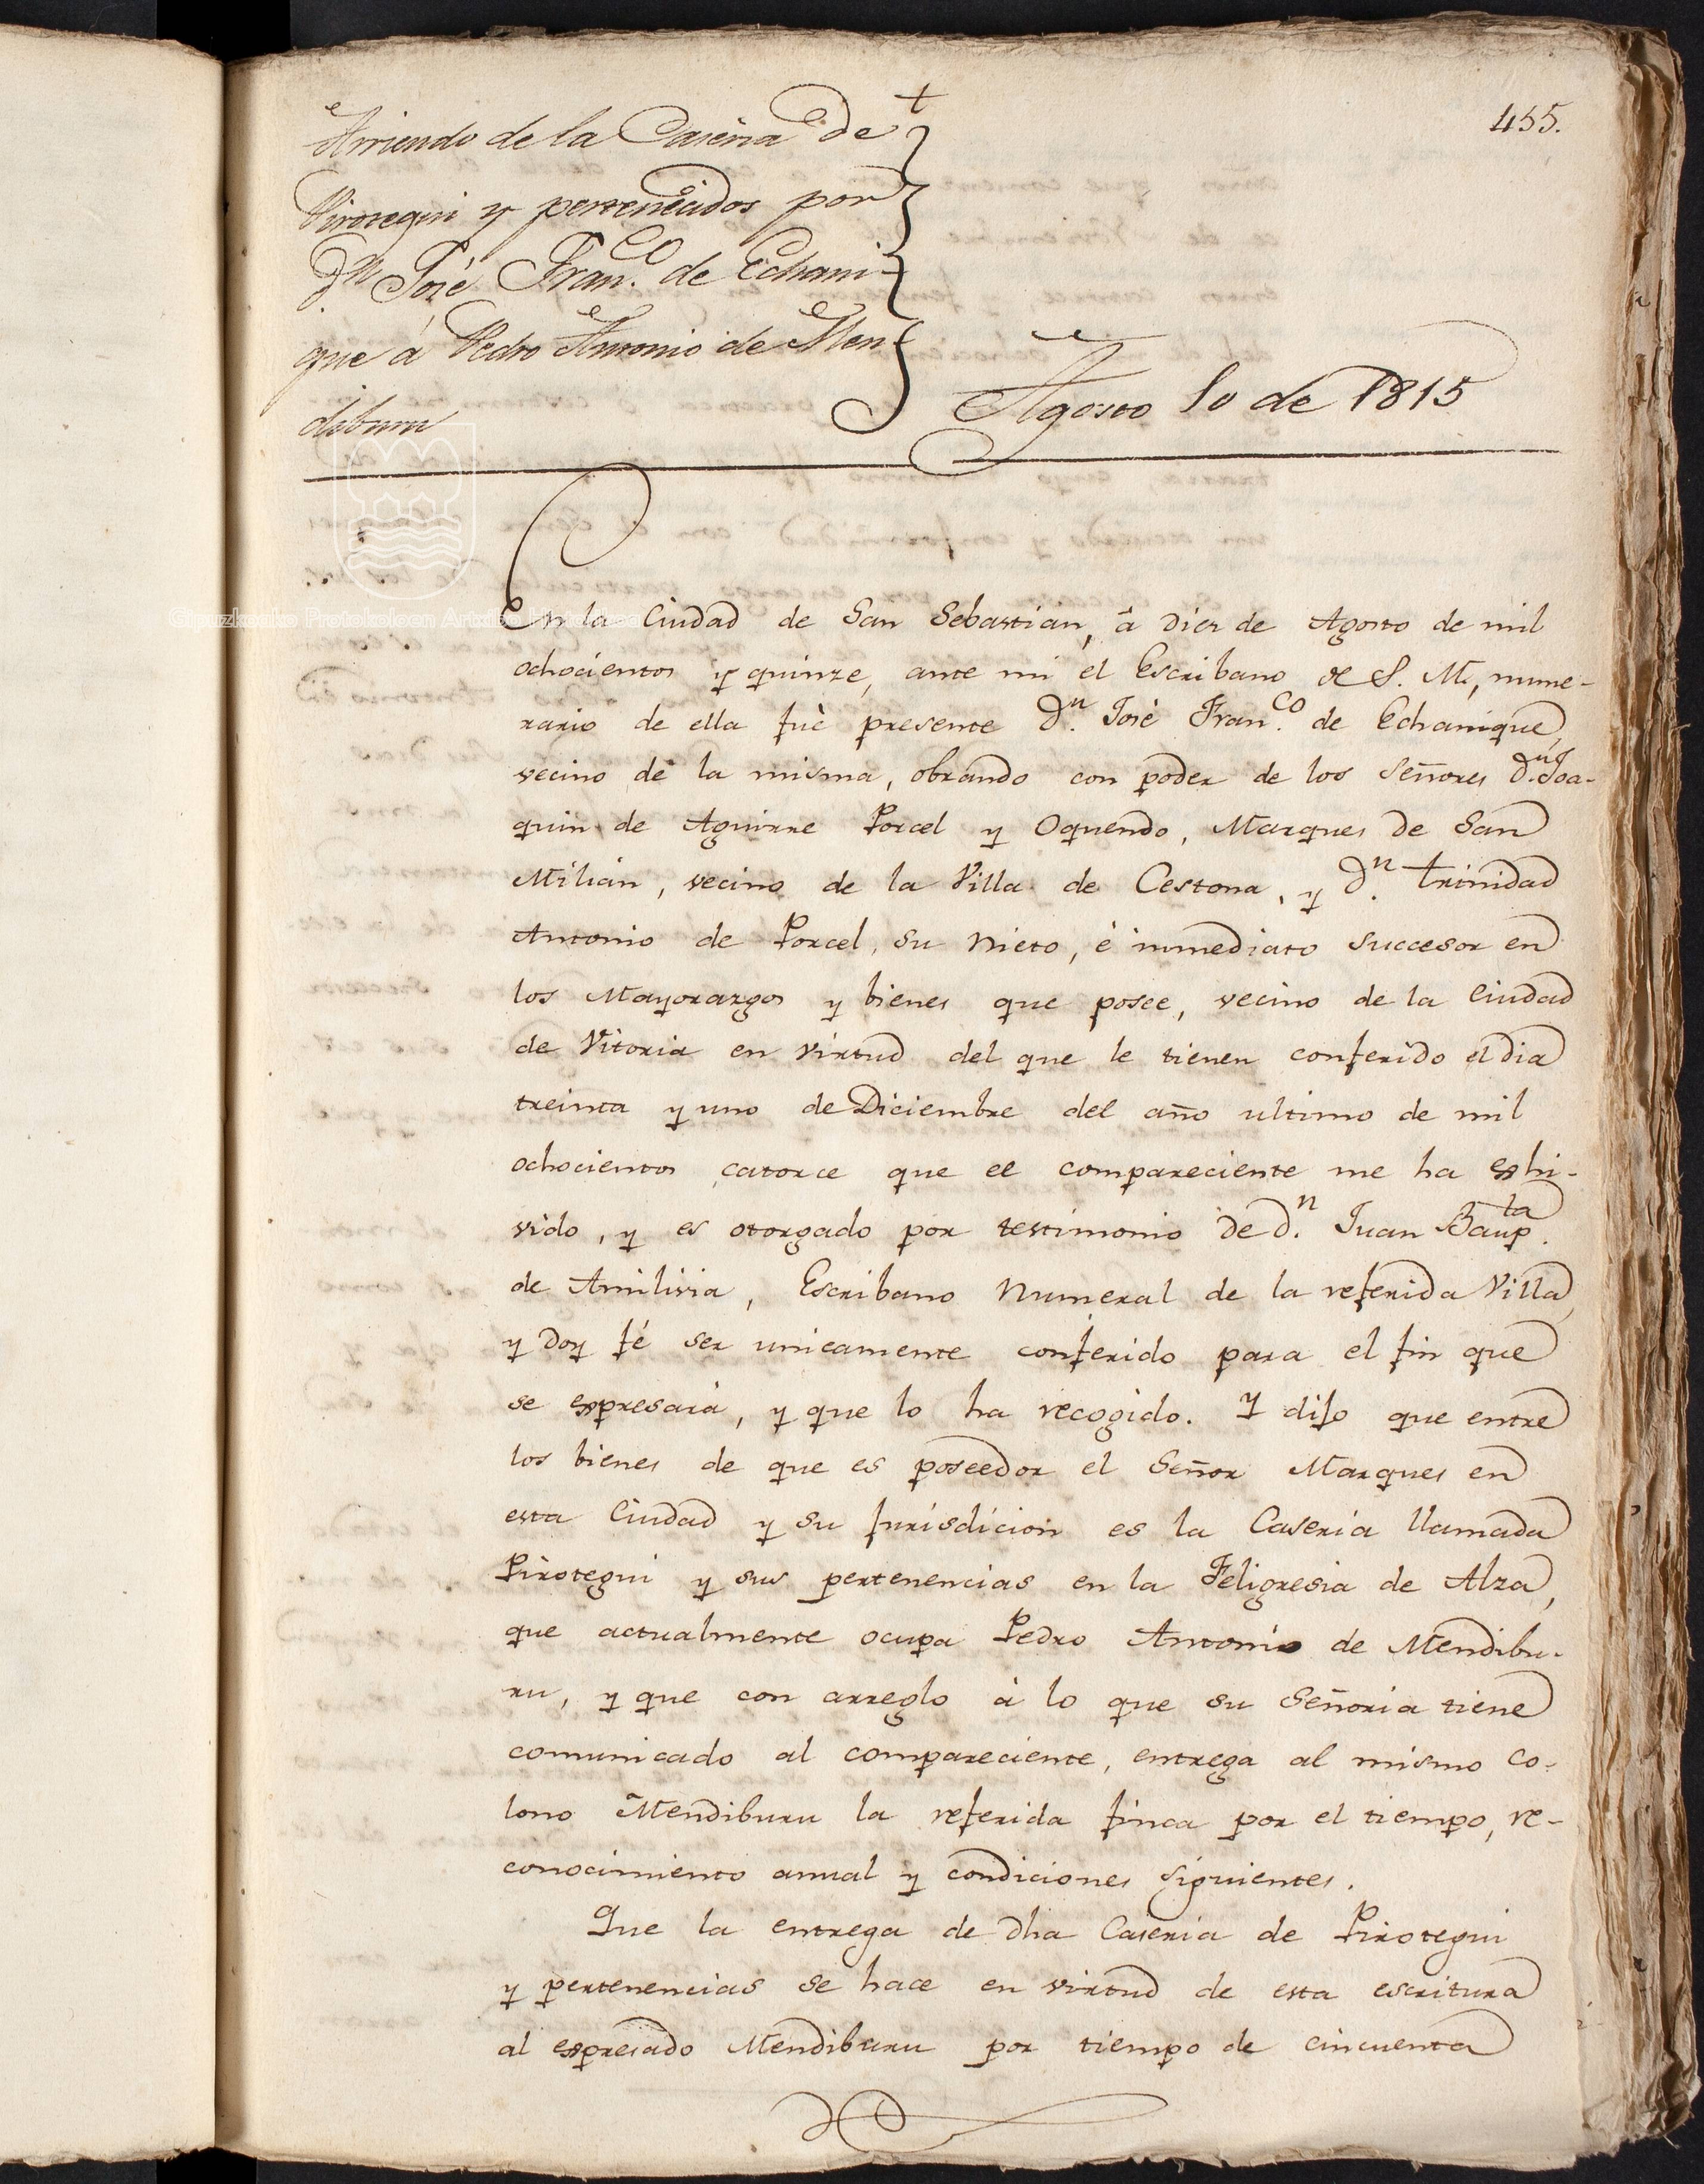 455.
Arriendo de la Caseria de
Pirotegui y pertenecidos por
Dn. José Fran.co de Echani-
que á Pedro Antonio de Men-
diburu
Agosto 10 de 1815
En la Ciudad de San Sebastian, á dies de Agosto de mil
ochocientos y quinze, ante mi el Escribano de S. M., nume-
rario de ella fué presente Dn. José Fran.co de Echanique,
vecino de la misma, obrando con poder de los Señores Dn. Joa-
quin de Aguirre Porcel y Oquendo, Marques de San
Milián, vecino de la Villa de Cestona, y Dn. Trinidad
Antonio de Porcel, su Nieto, é inmediato succesor en
los Mayorazgos y bienes que posee, vecino de la Ciudad
de Vitoria en virtud del que le tienen conferido el dia
treinta y uno de Diciembre del año ultimo de mil
ochocientos catorce que el compareciente me ha exhi-
vido, y es otorgado por testimonio de Dn. Juan Baup.ta
de Amilivia, Escribano Numeral de la referida Villa,
y doy fé ser unicamente conferido para el fin que
se expresará, y que lo ha recogido. Y dijo que entre
los bienes de que es poseedor el Señor Marques en
esta Ciudad y su jurisdicion es la Caseria llamada
Pirotegui y sus pertenencias en la Feligresia de Alza,
que actualmente ocupa Pedro Antonio de Mendibu-
ru, y que con arreglo á lo que su Señoria tiene
comunicado al compareciente, entrega al mismo Co-
lono Mendiburu la referida finca por el tiempo, re-
conocimiento anual y condiciones siguientes.
Que la entrega de dha Caseria de Pirotegui
y pertenencias se hace en virtud de esta escritura
al expresado Mendiburu por tiempo de cincuenta
Gipuzkoako Protokoloen Artxibo Historikoa